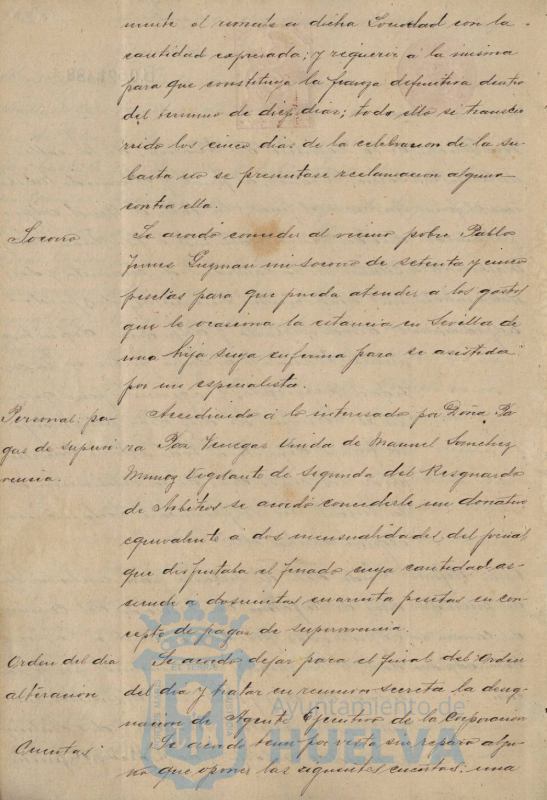 mente el remate a dicha Sociedad con la
cantidad expresada; y requerir á la misma
para que constituya la fianza definitiva dentro
del termino de diez dias; todo ello si transcu
rrido los cinco dias de la celebracion de la su
basta no se presentase reclamacion alguna
contra ella.
Socorro
Se acordó conceder al vecino pobre Pablo
Guzman un socorro de setenta y cinco
pesetas para que pueda atender á los gastos
que le ocasiona la estancia en Sevilla de
una hija suya enferma para se asistida
por un especialista.
Personal: pa-
gas de supervi
vencia.
Accediendo á lo interesado por Doña
Paz Venegas Viuda de Manuel Sanchez
Munoz Vigilante de Segunda del Resguardo
de Arbitros se acordó concederle un donativo
equivalente á dos mensualidades del jornal
que disfrutaba el finado cuya cantidad as-
ciende a doscientas cuarenta pesetas en con-
cepto de pagas de supervivencia.
Orden del dia
alteracion
Se acordó dejar para el final del Orden
del dia y tratar en reunion secreta la desig-
nacion de Agente Ejecutivo de la Corporacion
Cuentas.
Se acordó tener por vista sin reparo algu-
no que oponer las siguientes cuentas: una
Ayuntamiento de
HUELVA